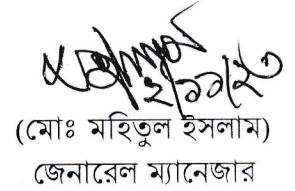 (মোঃ মহিতুল ইসলাম)
জেনারেল ম্যানেজার